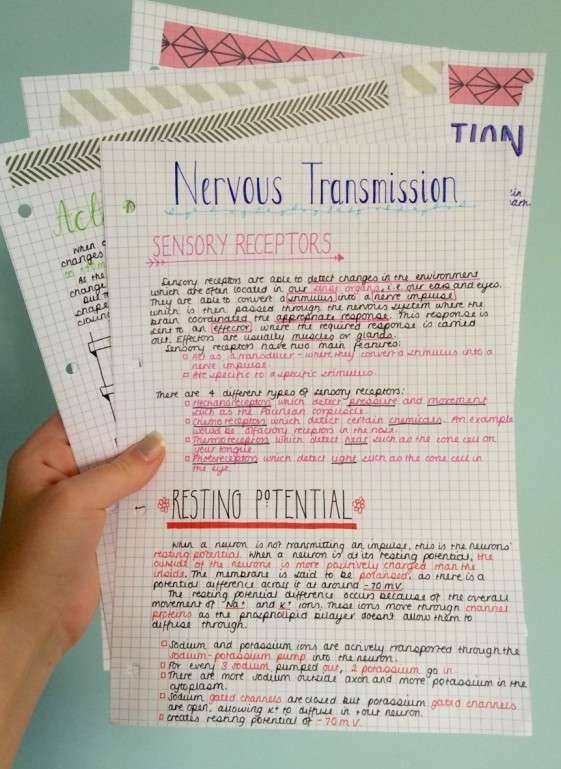 TION
in
Nervous Transmission
Acti
SENSORY RECEPTORS
when
changes
At the
change
but
shape
closing
Sensory receptors are able to detect changes in the environment
which are often located in our sense organs, i.e. our ears and eyes.
They are able to convert a stimulus into a nerve impulse
which is then passed through the nervous system where the
brain coordinates the appropriate response. This response is
sent to an effector where the required response is carried
out. Effectors are usually muscles or glands.
Sensory receptors have two main features:
Act as a transducer - where they convert a stimulus into a
nerve impulse
Are specific to a specific stimulus.
There are 4 different types of sensory receptors:
Mechanoreceptors which detect pressure and movement
such as the Pacinean corpuscle.
Chemoreceptors which detect certain chemicals. An example
would be olfactory receptors in the nose.
Thermoreceptors which detect heat such as the cone cell on
your tongue.
Photoreceptors which detect light such as the cone cell in
the eye.
RESTING POTENTIAL
When a neuron is not transmitting an impulse, this is the neurons'
resting potential. When a neuron is at its resting potential, the
outside of the neurone is more positively charged than the
inside. The membrane is said to be polarised, as there is a
potential difference across it at around -70 mV.
The resting potential difference occurs because of the overall
movement of Na+ and K+ ions. These ions move through channel
proteins as the phospholipid bilayer doesn't allow them to
diffuse through.
Sodium and potassium ions are actively transported through the
sodium-potassium pump into the neuron.
For every 3 sodium pumped out, 2 potassium go in.
There are more sodium outside axon and more potassium in the
cytoplasm.
Sodium gated channels are closed but potassium gated channels
are open, allowing K+ to diffuse in + out neuron.
creates resting potential of -70 mV.